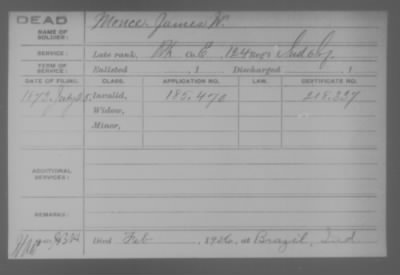 DEAD
NAME OF SOLDIER: Monce James W
SERVICE: Late rank, Co. E, 124 Reg't Ind Inf
TERM OF SERVICE: Enlisted , 1 Discharged , 1
DATE OF FILING. CLASS. APPLICATION NO. LAW. CERTIFICATE NO.
1873 July Invalid, 185.470 218.337
Widow,
Minor,
ADDITIONAL SERVICES:
REMARKS:
Died Feb , 1926, at Brazil, Ind